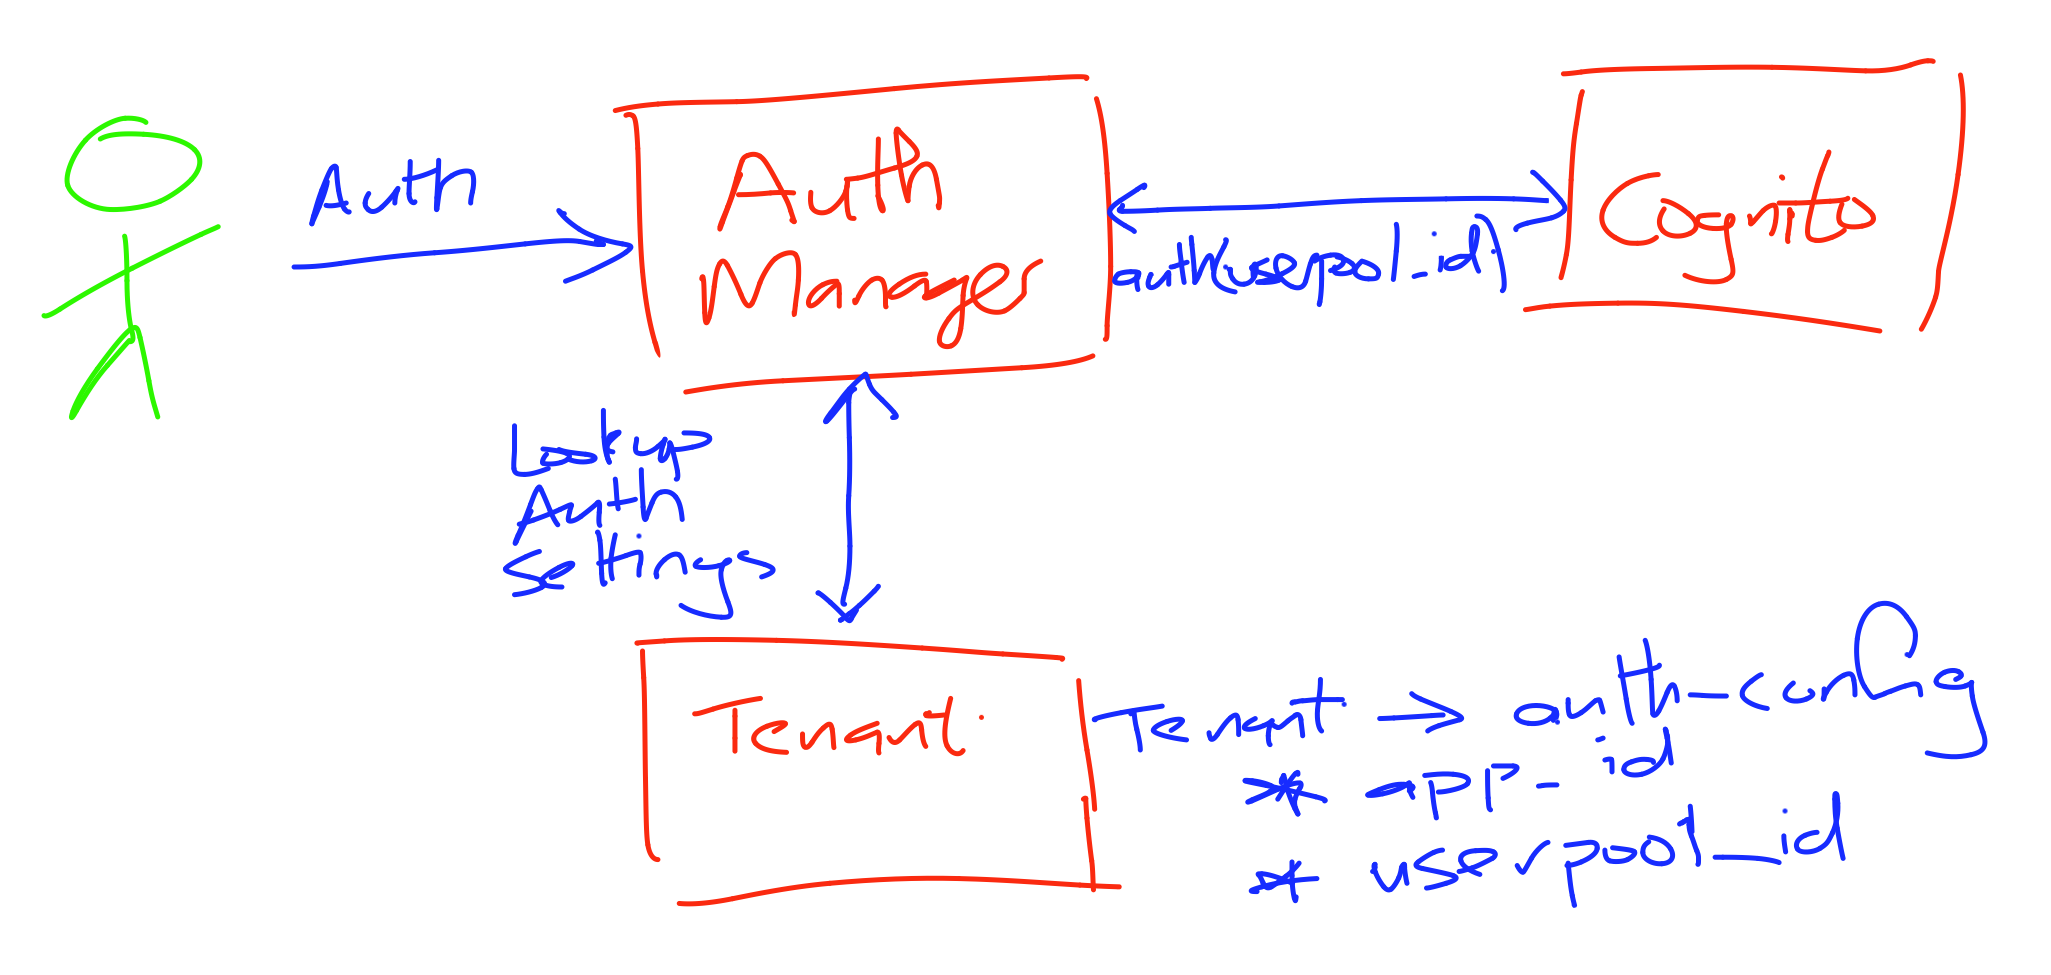 Auth
Auth
Manager
auth(userpool.id)
Cognito
Lookup
Auth
Settings
Tenant
Tenant → auth-config
* app-id
* userpool_id